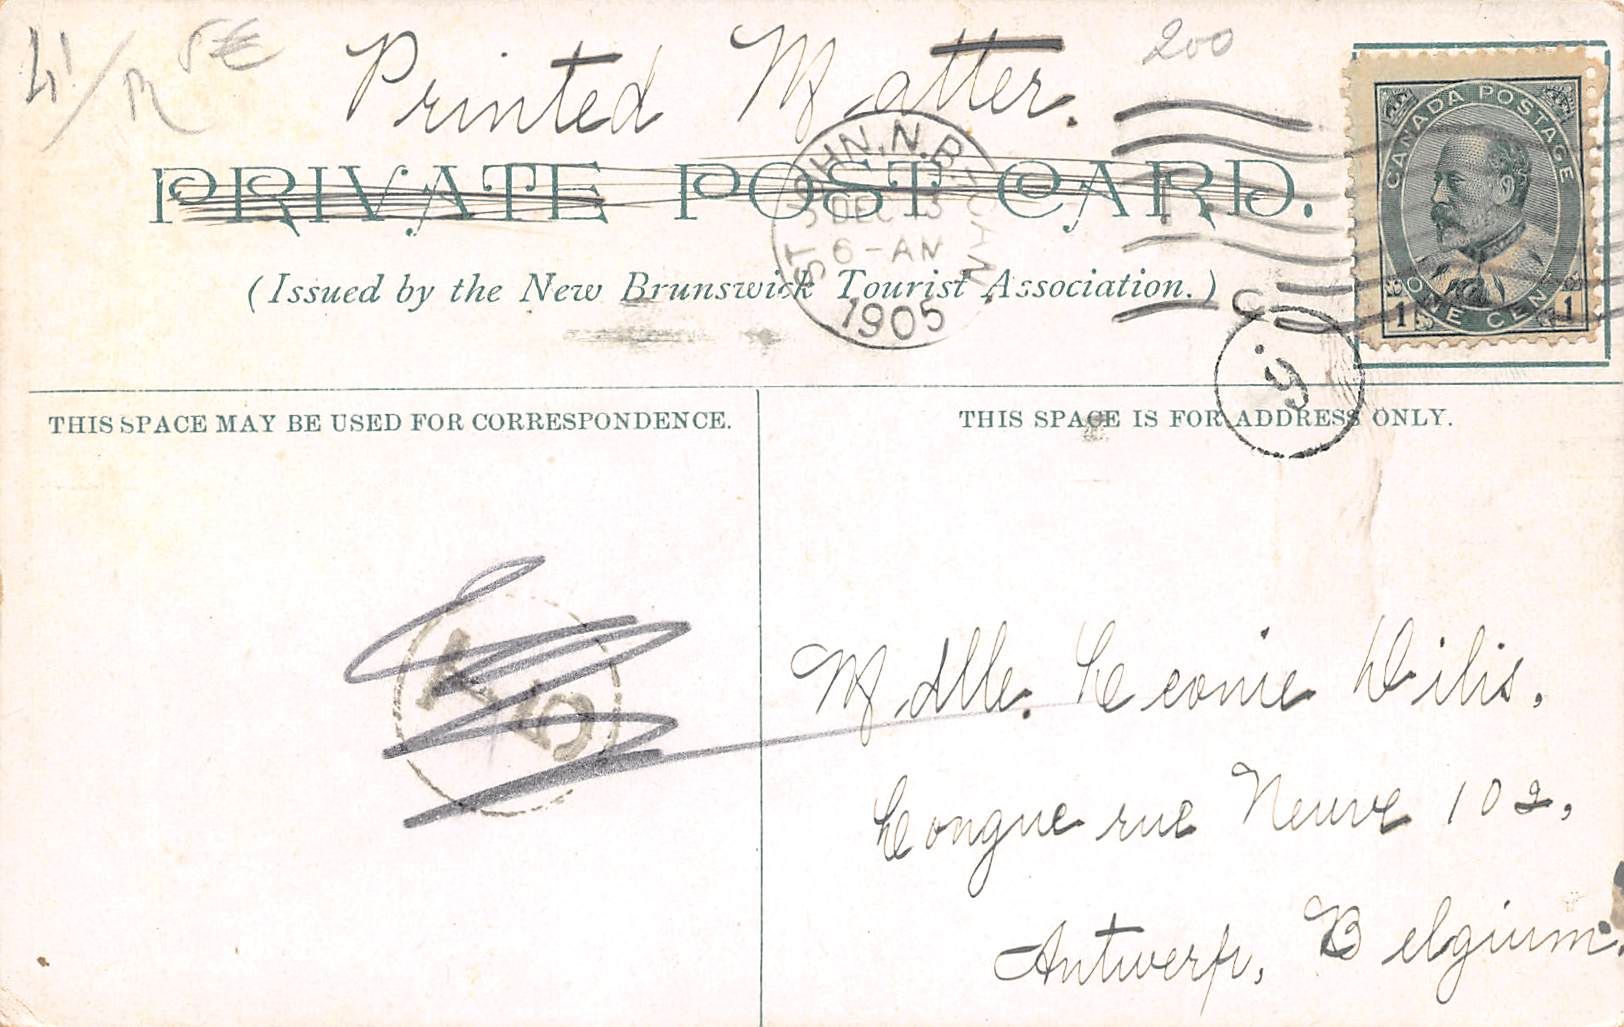 5€
Printed Matter.
200
PRIVATE POST CARD.
ST. JOHN, N.B.
DEC 13
6-AM
1905
CANADA POSTAGE
1 ONE CENT 1
(Issued by the New Brunswick Tourist Association.)
THIS SPACE MAY BE USED FOR CORRESPONDENCE.
THIS SPACE IS FOR ADDRESS ONLY.
T
5
Mdlle. Leonie Wilis,
Longue rue Neuve 102,
Antwerp, Belgium.